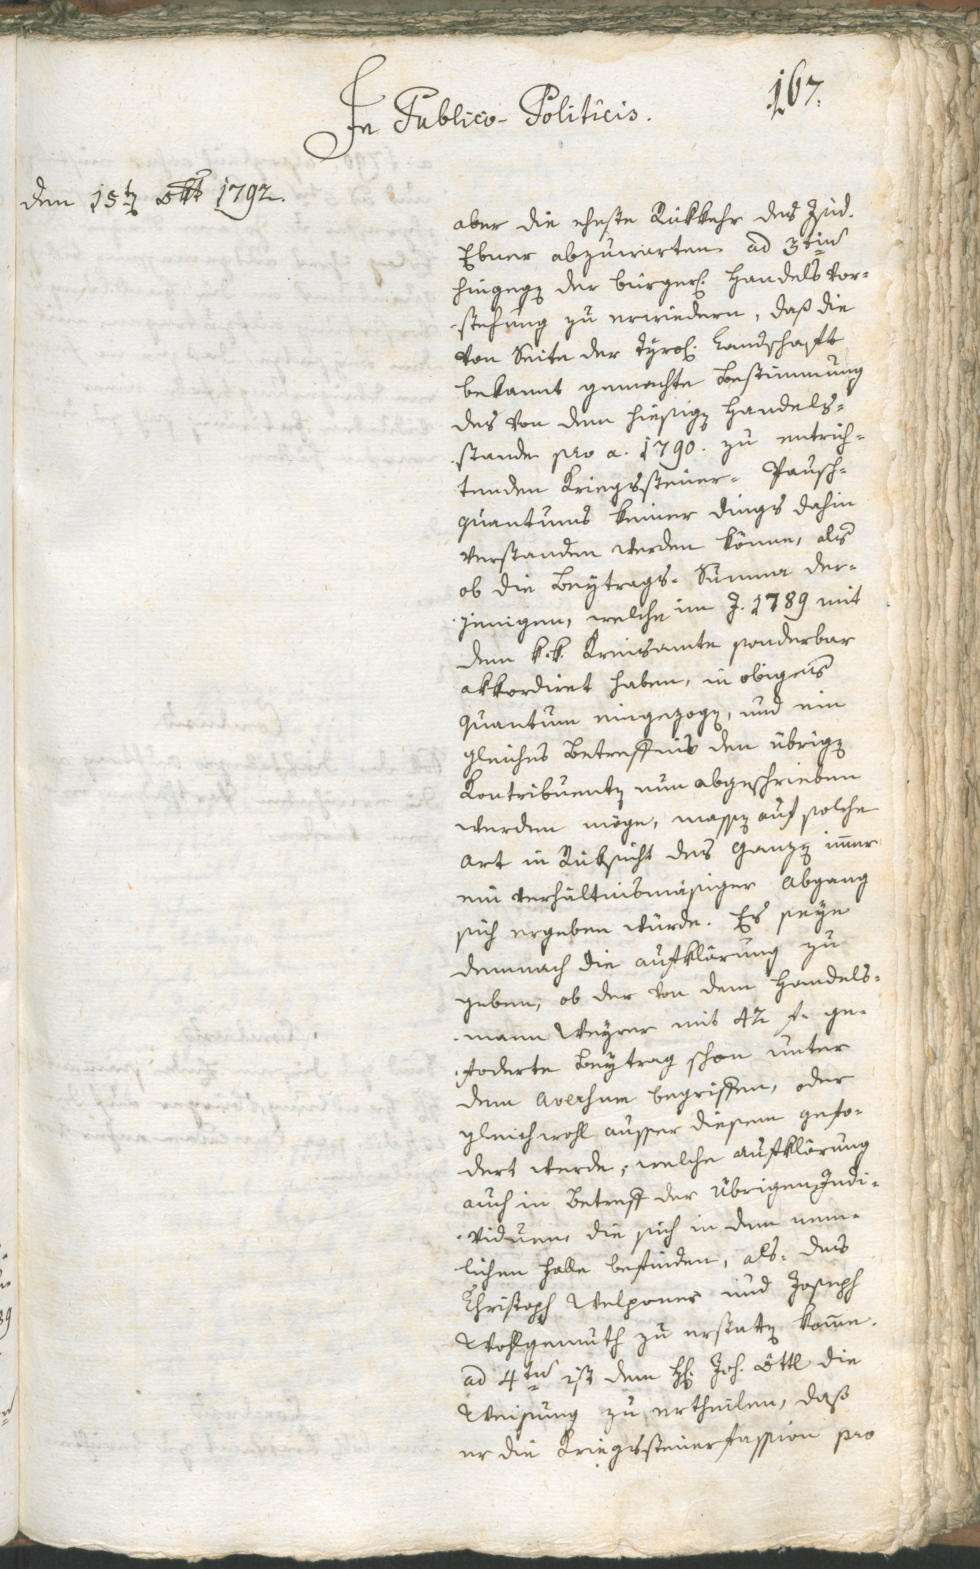 167.
In Publico-Politicis.
den 15tn 8br 1792.
aber die eheste Rükkehr des Jud.
Ebner abzuwarten. ad 3tium
hingegen der bürgerl: Handels Vor-
stehung zu erwiedern, daß die
von Seite der tÿrol: Landschaft
bekannt gemachte Bestimmung
des von dem hiesigen Handels-
stande pro a. 1790. zu entrich-
tenden Kriegssteuer- Pausch-
quantums keiner dings dahin
verstanden werden könne, als
ob die Beÿtrags- Summa der-
jenigen, welche im J. 1789 mit
dem k.k. Kreisamte sonderbar
akkordiret haben, in obiges
quantum eingezogen, und ein
gleiches Betreffnis den übrigen
Kontribuenten nun abgeschrieben
werden möge, massen auf solche
art in Rüksicht des Ganzen immer
ein verhältnismäsiger Abgang
sich ergeben würde. Es seÿe
demnach die aufklärung zu
geben, ob der von dem Handels-
mann Weÿrer mit 42 f. ge-
foderte Beÿtrag schon unter
dem Aversum begriffen, oder
gleichwohl ausser diesem gefo-
dert werde, welche aufklärung
auch in Betreff der übrigen Indi-
viduen, die sich in dem nem-
lichen Falle befinden, als: des
Christoph Welponer und Joseph
Wohlgemuth zu erstatten komme.
ad 4tum ist dem H: Joh. Öttl die
Weisung zu ertheilen, daß
er die Kriegssteuerfassion pro